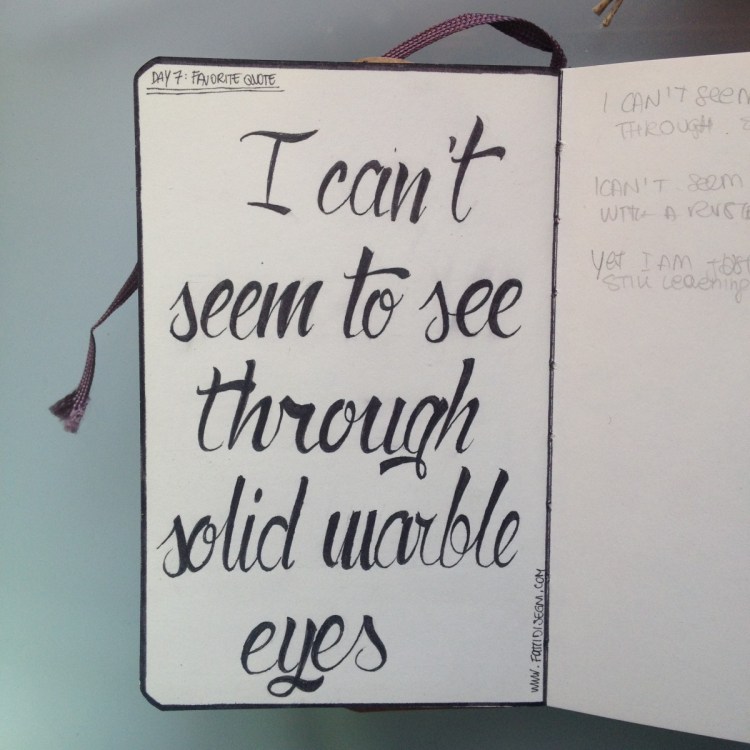 DAY 7: FAVORITE QUOTE
I can't
seem to see
through
solid marble
eyes
I CAN'T SEEM
THROUGH.
I CAN'T SEEM
WITH A
YET I AM
STILL LEARNING